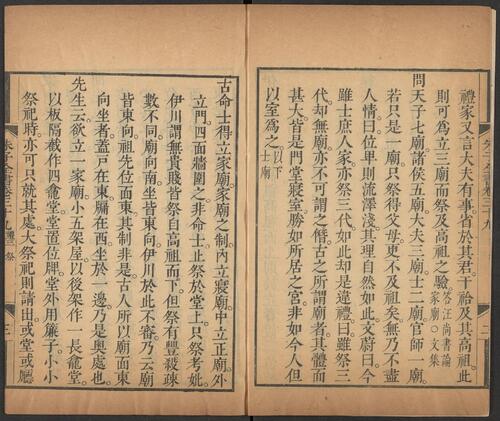 禮家又言大夫有事省於其君干祫及其高祖此
則可爲立三廟而祭及高祖之驗。答汪尚書論
家廟〇文集
問天子七廟諸侯五廟大夫三廟士二廟官師一廟
若只是一廟只祭得父母更不及祖矣無乃不盡
人情曰位卑則流澤淺其理自然如此文蔚曰今
雖士庶人家亦祭三代如此却是違禮曰雖祭三
代却無廟亦不可謂之僭古之所謂廟者其體面
甚大皆是門堂寢室勝如所居之宮非如今人但
以室爲之以下
士廟
古命士得立家廟家廟之制內立寢廟中立正廟外
立門四面牆圍之非命士止祭於堂上只祭考妣
伊川謂無貴賤皆祭自高祖而下但祭有豐殺疎
數不同廟向南坐皆東向伊川於此不審乃云廟
皆東向祖先位面東其制非是古人所以廟面東
向坐者蓋戶在東牖在西坐於一邊乃是奧處也
先生云欲立一家廟小五架屋以後架作一長龕堂
以板隔截作四龕堂堂置位牌堂外用簾子小小
祭祀時亦可只就其處大祭祀則請出或堂或廳